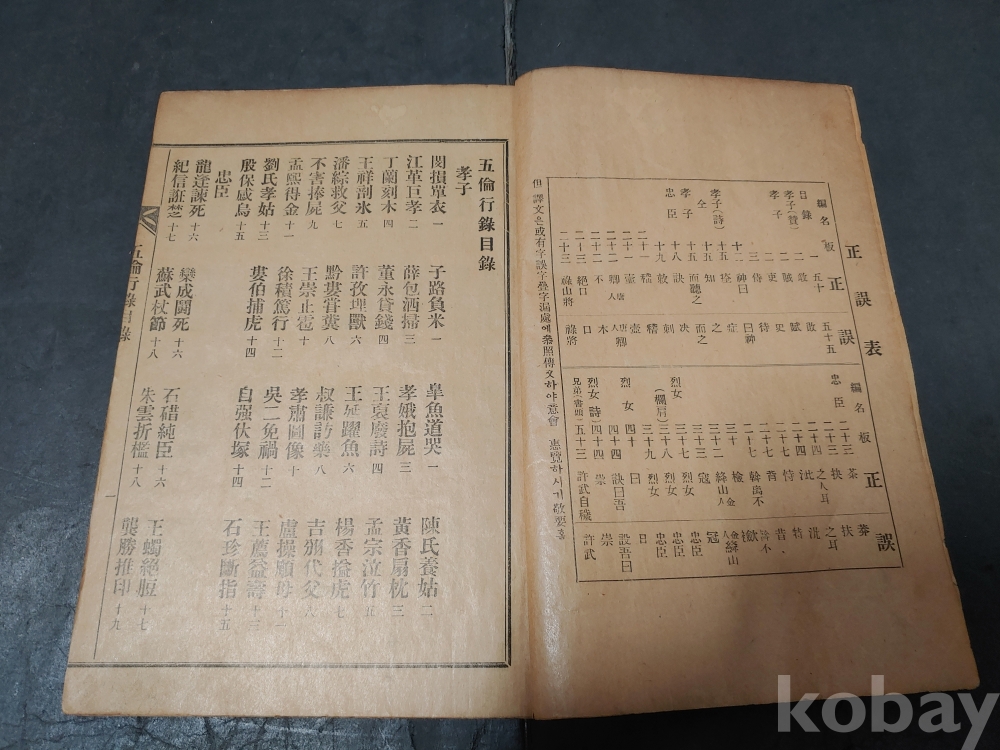 正誤表
編名 板 正 誤
目錄 一 五十 五十五
二 賊 賦
孝子 二 吏 史
三 侍 待
十二 神曰 曰神
孝子(詩) 十五 痊 症
仝 十五 知 之
十五 而聽之 而之
孝子 十八 訣 決
忠臣
二十二 不 木
二十三 絕口 口
二十三 祿山將 祿將
編名 板 正 誤
忠臣 二十三 茶 莽
二十四 抉 扶
二十四 之人耳 之耳
二十四 泚 洗
二十七 恃 特
二十九 胥 昔
三十 幹离不
三十二 絳山人
三十三 寇 冠
烈女 三十七 烈女 忠臣
(欄肩) 三十七 烈女 忠臣
三十九 烈女 忠臣
烈女 四十 曰 日
四十四 訣曰吾 設吾曰
烈女(詩) 四十四 崇
兄弟書頭 五十三 許武自穢 許武
但 譯文은或有字誤字疊字漏處에參照傳文하야意會 惠覽하시기敬要홈
五倫行錄目錄
孝子
閔損單衣 一 子路負米 一 皐魚道哭 一 陳氏養姑 二
江革巨孝 二 薛包洒掃 三 孝娥抱屍 三 黃香扇枕 三
丁蘭刻木 四 董永貸錢 四 王裒廢詩 四 孟宗泣竹 五
王祥剖氷 五 許孜埋獸 六 王延躍魚 六 楊香搤虎 七
潘綜救父 七 黔婁嘗糞 八 叔謙訪藥 八 吉翂代父 六
不害捧屍 九 王崇止雹 十 孝肅圖像 十 盧操順母 十一
孟熙得金 十一 徐積篤行 十二 吳二免禍 十二 王薦益壽 十三
劉氏孝姑 十三 婁伯捕虎 十四 自强伏塚 十四 石珍斷指 十五
殷保感烏 十五
忠臣
龍逄諫死 十六 欒成鬪死 十六 石碏純臣 十六 王蠋絕脰 十七
紀信誑楚 十七 蘇武杖節 十八 朱雲折檻 十八 龔勝推印 十九
五倫行錄目錄 一
kobay